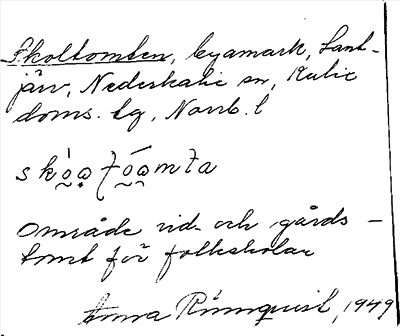 Skoltomten, byamark, Sant-
järv, Nederkalix sn, Kalix
doms. lg, Norrb. l
område vid- och gårds-
tomt för folkskolan
Anna Rönnquist, 1949